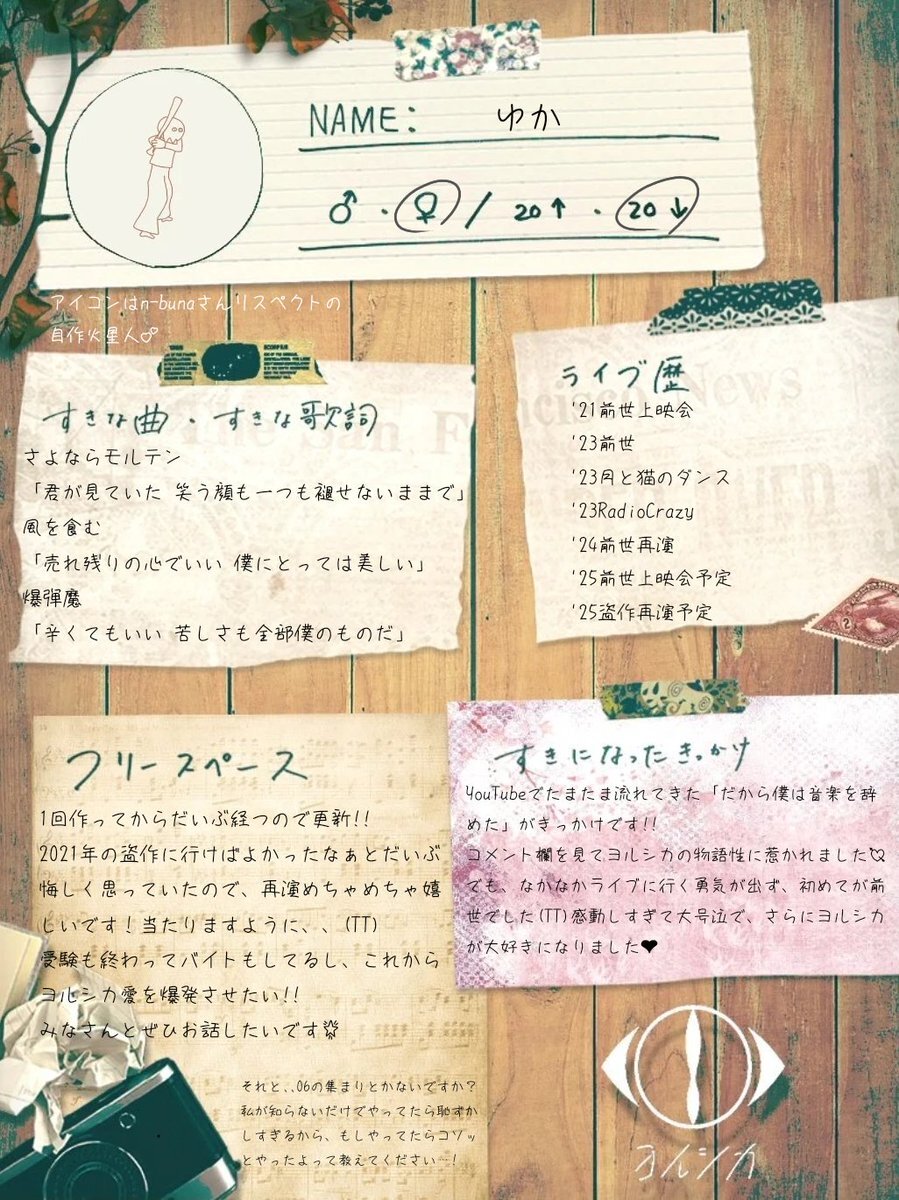 NAME: ゆか
♂・♀/20↑・20↓
アイコンはn-bunaさんリスペクトの
自作火星人♂
すきな曲・すきな歌詞
さよならモルテン
「君が見ていた 笑う顔も一つも褪せないままで」
風を食む
「売れ残りの心でいい 僕にとっては美しい」
爆弾魔
「辛くてもいい 苦しさも全部僕のものだ」
ライブ歴
'21前世上映会
'23前世
'23月と猫のダンス
'23RadioCrazy
'24前世再演
'25前世上映会予定
'25盗作再演予定
フリースペース
1回作ってからだいぶ経つので更新!!
2021年の盗作に行けばよかったなぁとだいぶ
悔しく思っていたので、再演めちゃめちゃ嬉
しいです!当たりますように、、(TT)
受験も終わってバイトもしてるし、これから
ヨルシカ愛を爆発させたい!!
みなさんとぜひお話したいです
それと、、06の集まりとかないですか?
私が知らないだけでやってたら恥ずか
しすぎるから、もしやってたらコソッ
とやったよって教えてください…!
すきになったきっかけ
YouTubeでたまたま流れてきた「だから僕は音楽を辞
めた」がきっかけです!!
コメント欄を見てヨルシカの物語性に惹かれました💘
でも、なかなかライブに行く勇気が出ず、初めてが前
世でした(TT)感動しすぎて大号泣で、さらにヨルシカ
が大好きになりました❤
ヨルシカ